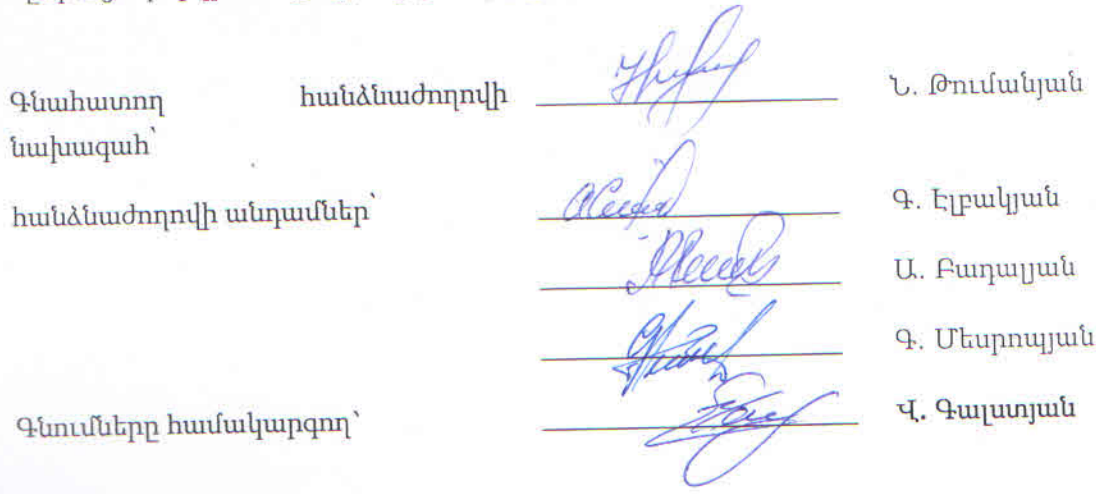 Գնահատող հանձնաժողովի Ն. Թումանյան
նախագահ՝
հանձնաժողովի անդամներ՝ Գ. Էլբակյան
Ա. Բադալյան
Գ. Մեսրոպյան
Գնումները համակարգող՝ Վ. Գալստյան